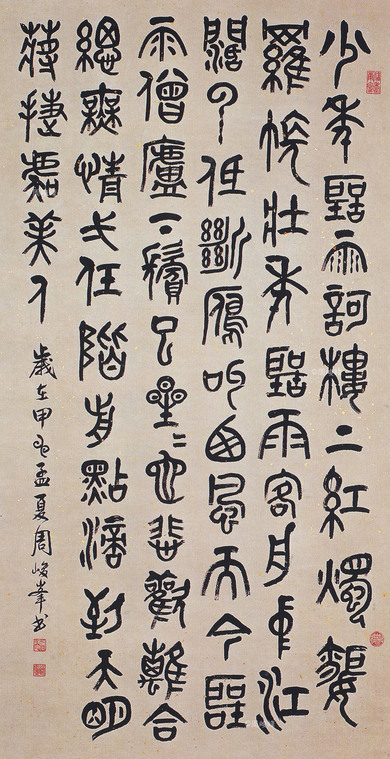 少年聽雨歌樓上紅燭昏
羅帳壯年聽雨客舟中江
闊雲低斷雁叫西風而今聽
雨僧廬下鬢已星〻也悲歡離合
總無情弌任階前點滴到天明
蔣捷虞美人 歲在甲孟夏周峻峯書